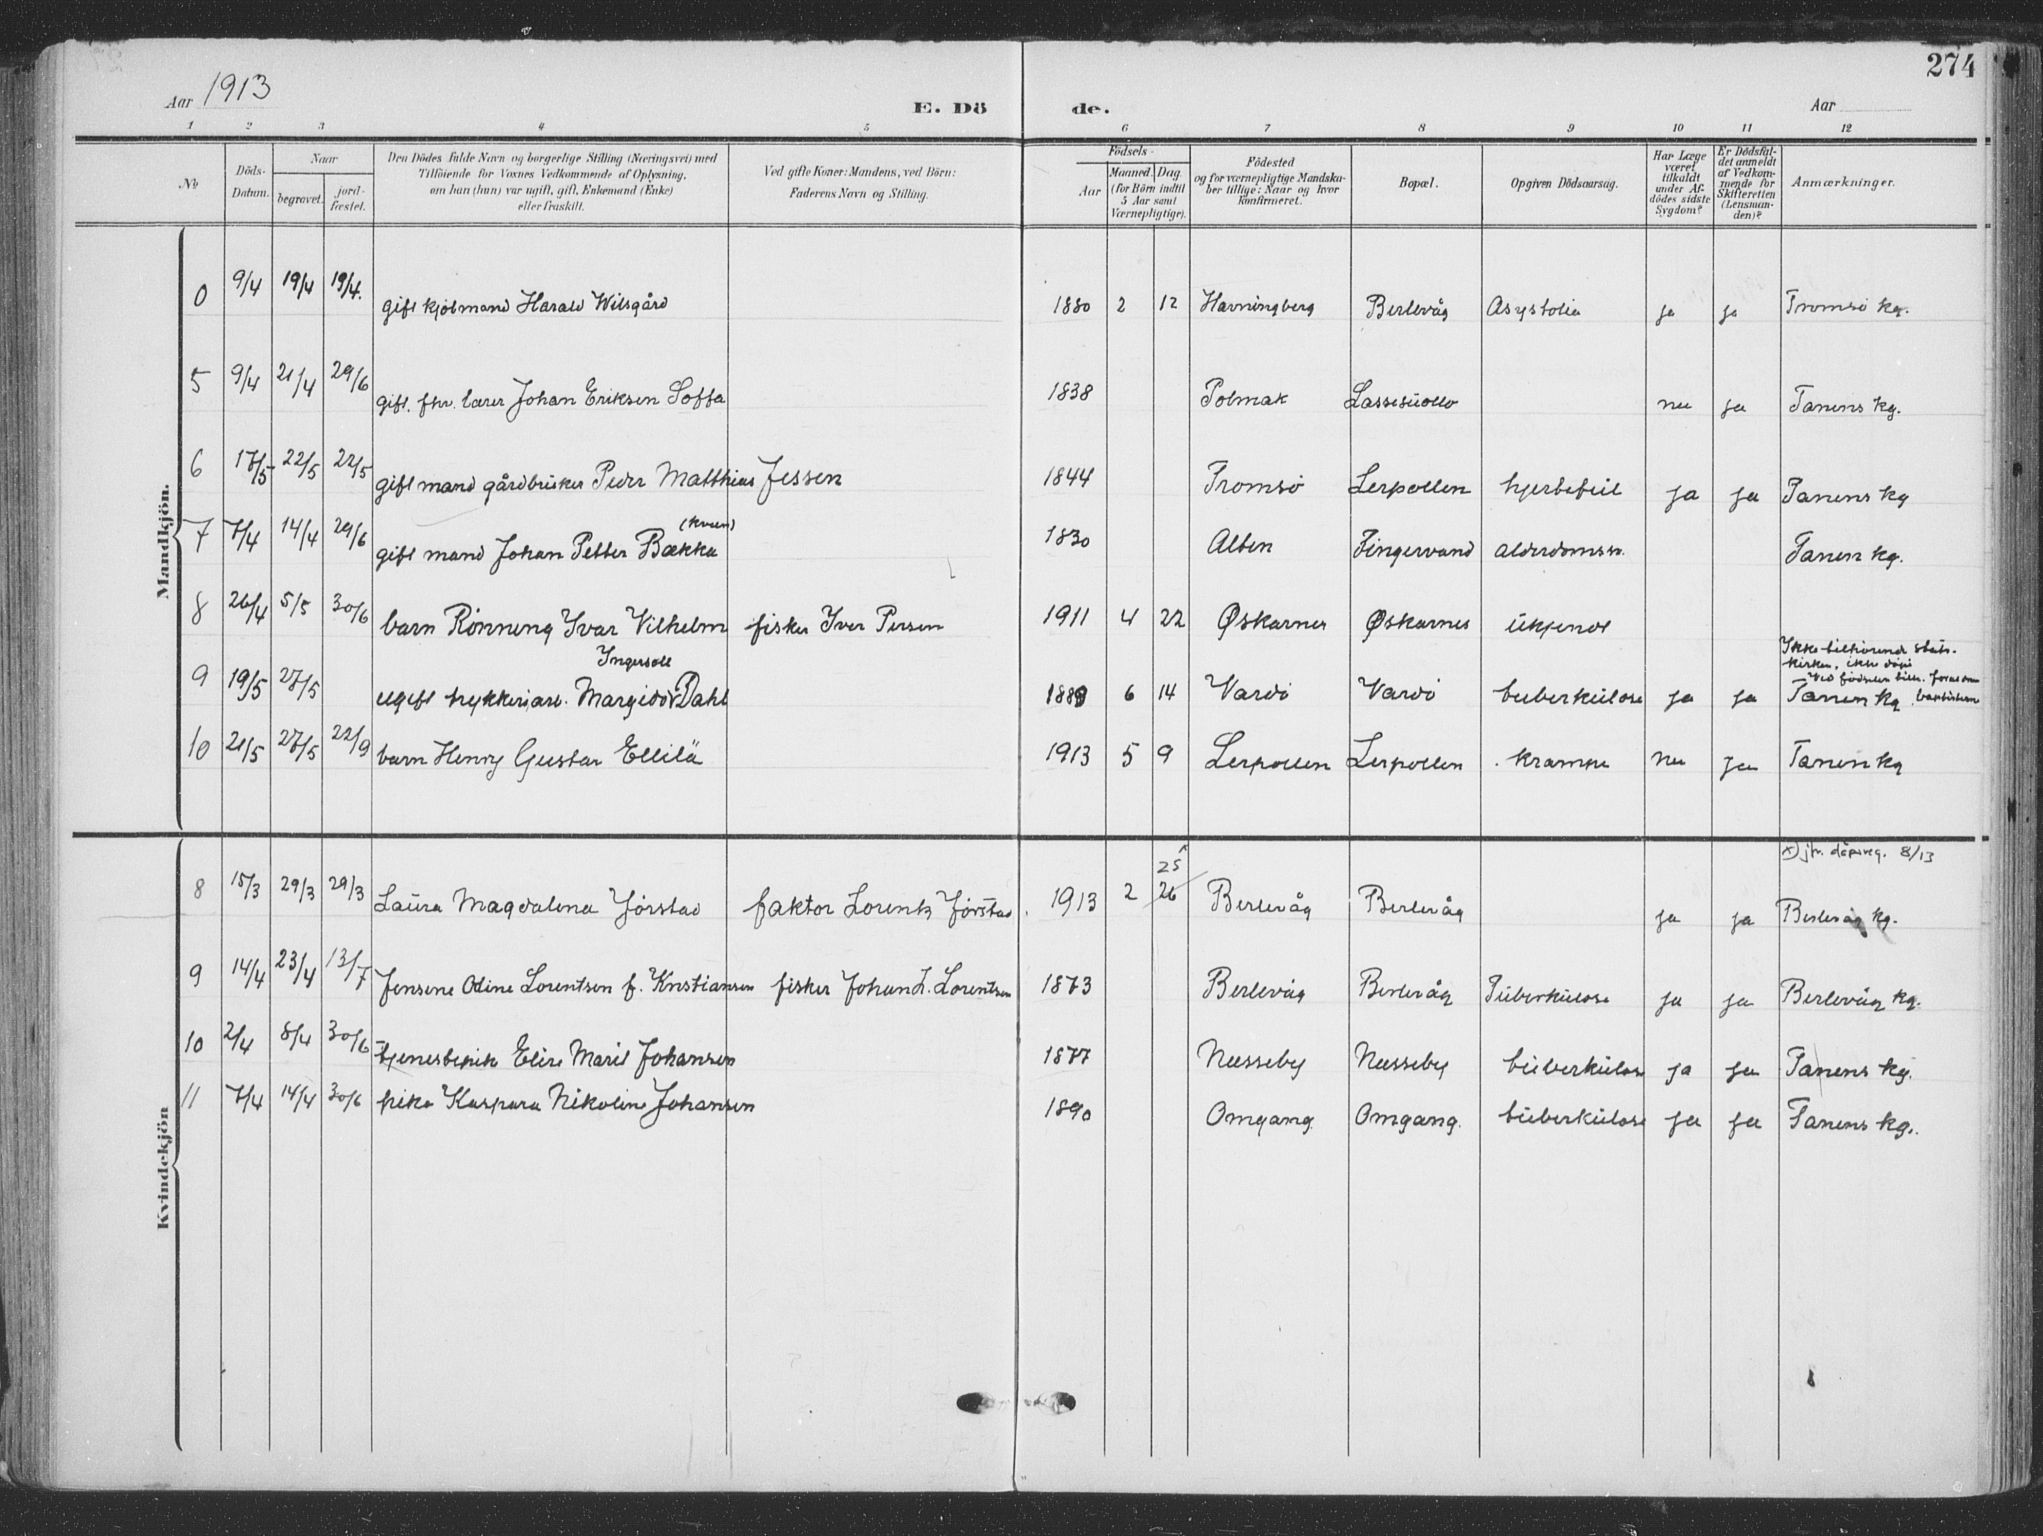 274
Aar 1913
E. Dö de.
Aar
1 2 3 4 5 6 7 8 9 10 11 12
No
Döds-Datum.
Naar
begravet.
jord-fæstet.
Den Dödes fulde Navn og borgerlige Stilling (Næringsvei) med
Tilföiende for Voxnes Vedkommende af Oplysning,
om han (hun) var ugift, gift, Enkemand (Enke)
eller fraskilt.
Ved gifte Koner: Mandens, ved Börn:
Faderens Navn og Stilling.
Födsels-
Aar
Maaned. Dag
(for Börn indtil
5 Aar samt
Værnepligtige).
Födested
og for værnepligtige Mandska-
ber tillige: Naar og hvor
Konfirmeret.
Bopæl.
Opgiven Dödsaarsag.
Har Læge
været
tilkaldt
under Af-
dödes sidste
Sygdom?
Er Dödsfal-
det anmeldt
af Vedkom-
mende for
Skifteretten
(Lensman-
den)?
Anmærkninger.
Mandkjön.
0 9/4 19/4 19/4. gift kjøbmand Harald Wilsgård 1880 2 12 Havningberg Berlevåg Asystolia ja ja Tromsø kg.
5 9/4 21/4 29/6 gift. fhr. lærer Johan Eriksen Soffa 1838 Polmak nei ja Tanens kg.
6 17/5 22/5 22/5 gift mand gårdbruker Peder Matthias Jessen 1844 Tromsø Lerpollen hjertefeil ja ja Tanens kg
(kven)
7 7/4 14/4 29/6 gift mand Johan Petter Bækka 1830 Alten Fingervand alderdomssv. Tanen kg.
8 26/4 5/5 30/6 barn Rønning Ivar Vilhelm fisker Iver Persen 1911 4 22 Øskarnes Øskarnes ukjendt
Ikke tilhørende stats-
kirken, ikke døpt
Ingvald
9 19/5 27/5 ugift trykkeriarb. Dahl 1889 6 14 Vardø Vardø tuberkulose ja ja Tanen kg
10 21/5 27/5 22/9 barn Henry Gustav Ellilä 1913 5 9 Lerpollen Lerpollen krampe nei ja Tanen kg
Kvindekjön
x) jfr. dåpsreg. 8/13
25 x
8 15/3 29/3 29/3 Laura Magdalena Jørstad faktor Lorentz Jørstad. 1913 2 26 Berlevåg Berlevåg ja ja Berlevåg kg.
9 14/4 23/4 13/7 Jensine Odine Lorentsen f. Kristiansen fisker Johan L. Lorentsen 1873 Berlevåg Berlevåg Tuberkulose ja ja Berlevåg kg.
10 2/4 8/4 30/6 tjenestepik Elire Marit Johansen 1877 Nesseby Nesseby tuberkulose ja ja Tanens kg.
11 7/4 14/4 30/6 pike Kaspara Nikoline Johansen 1890 Omgang Omgang. tuberkulose ja ja Tanens kg.